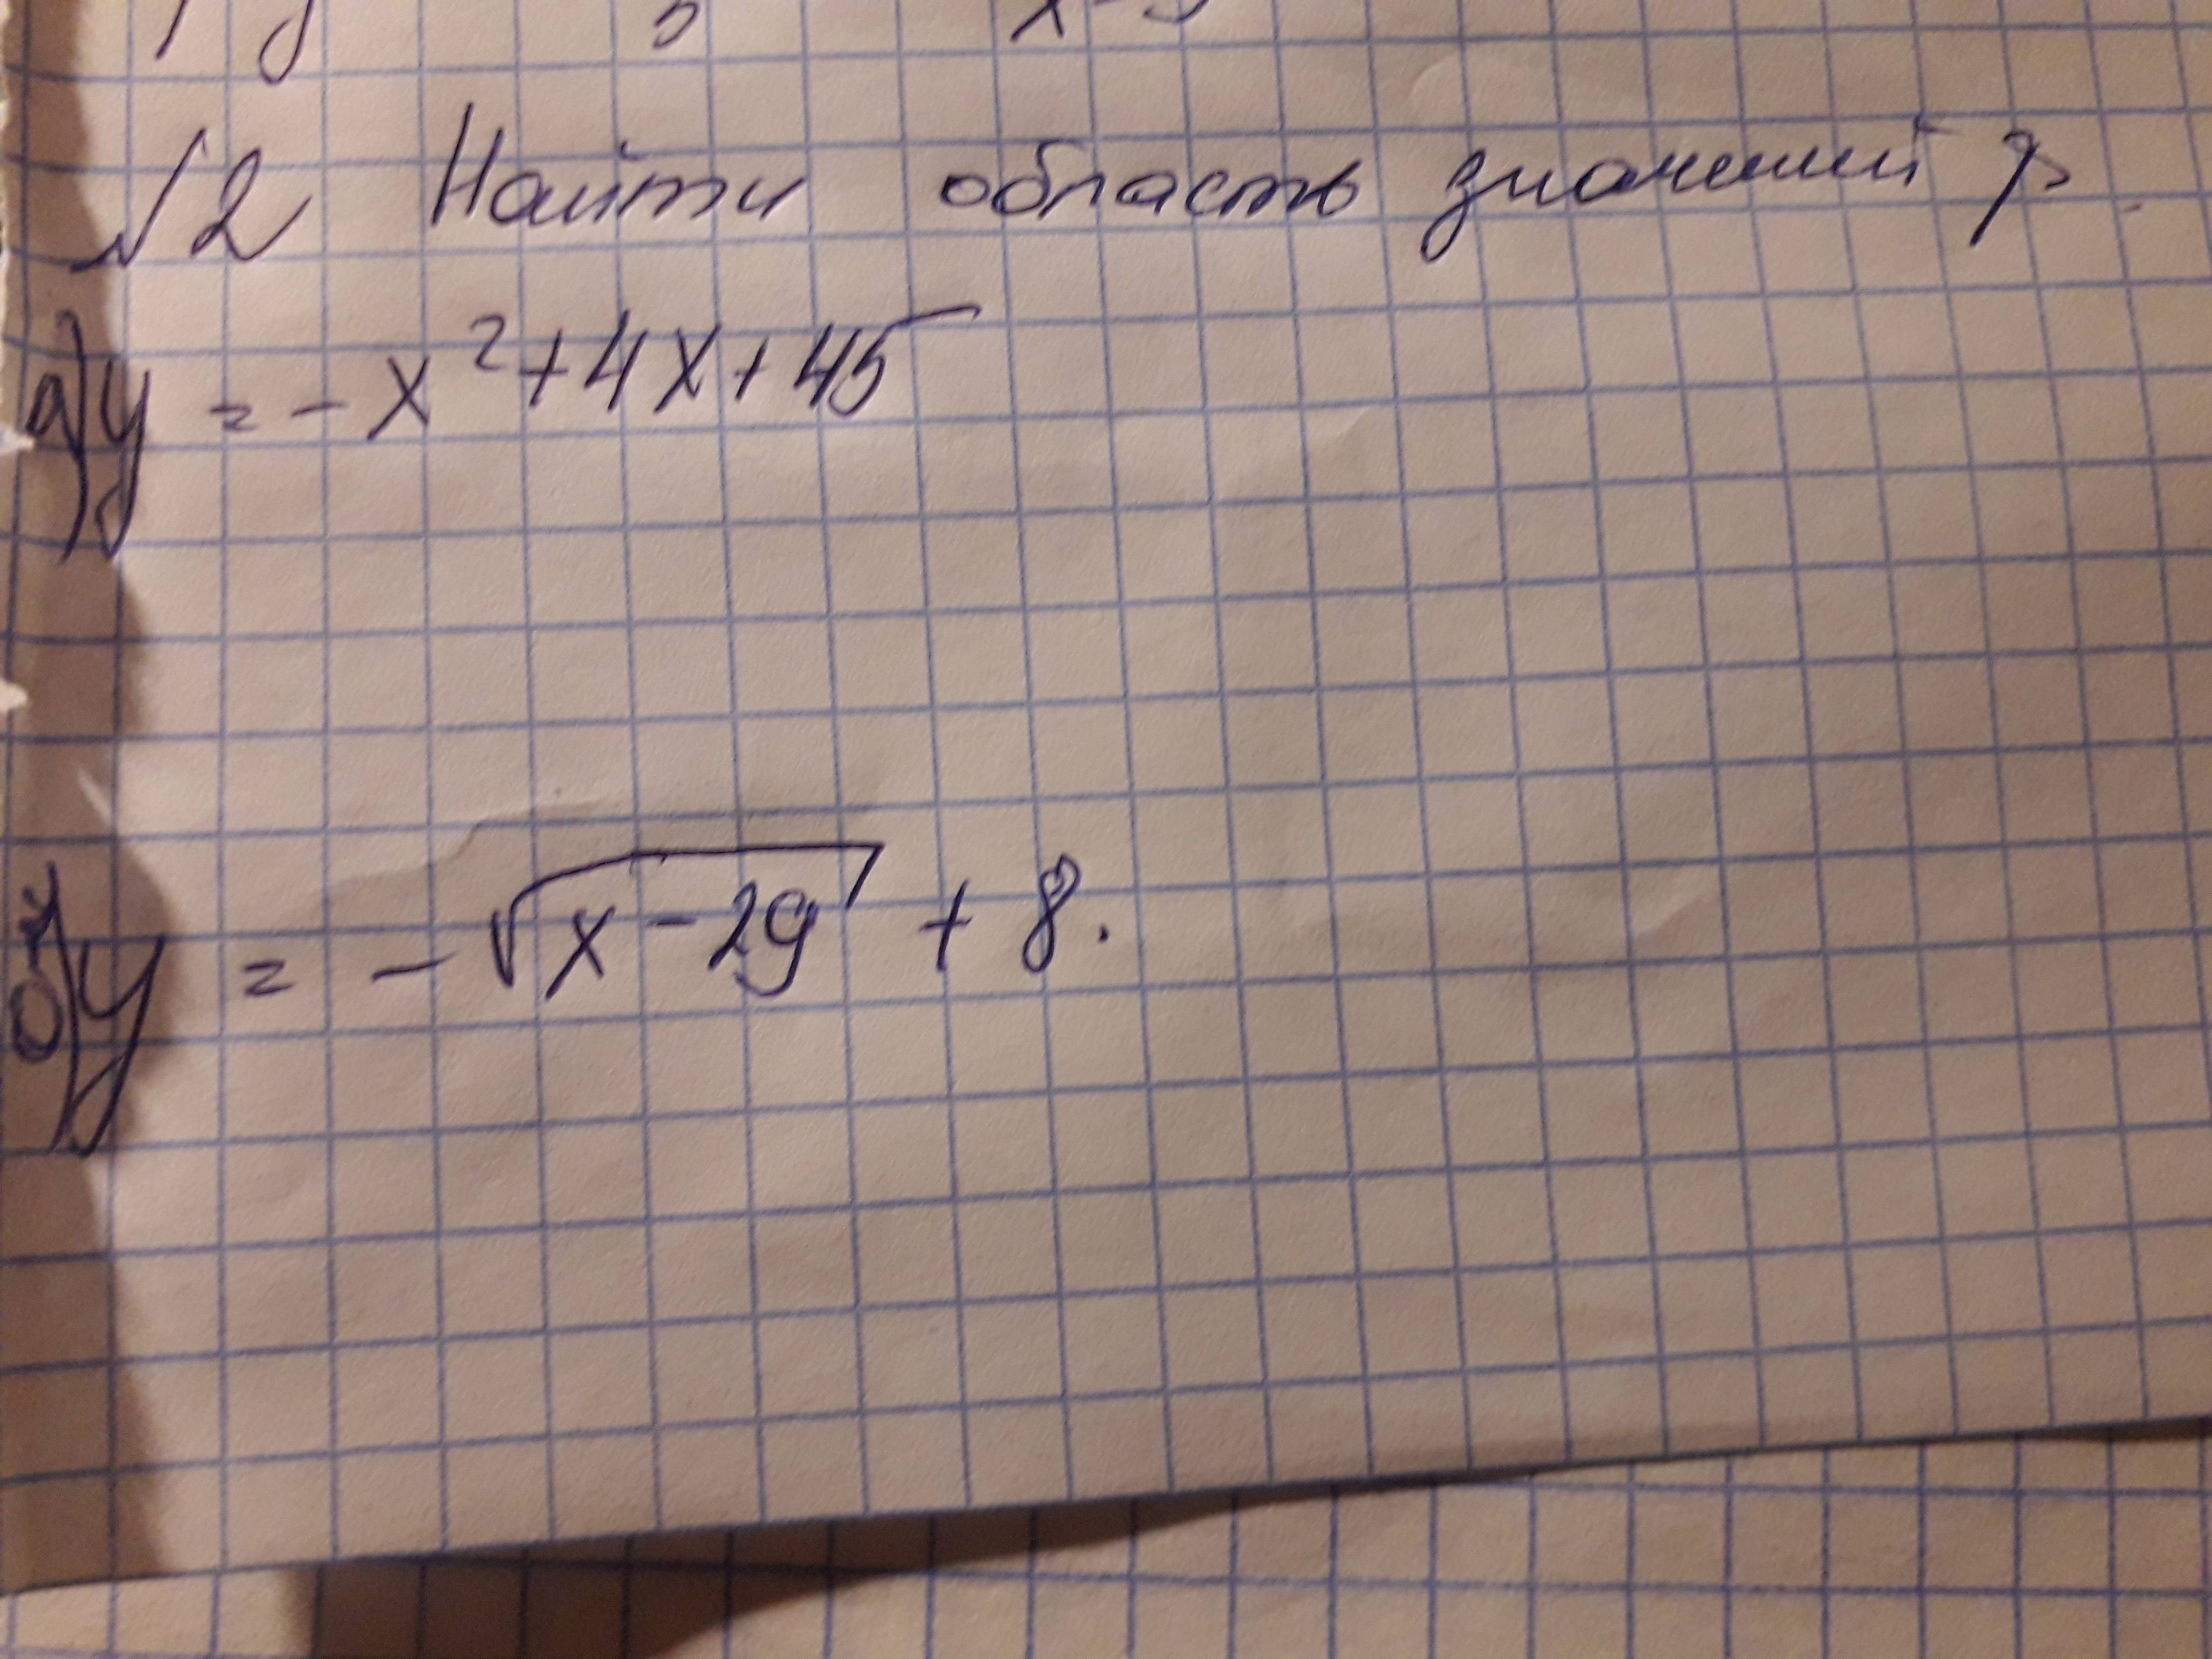 √2 Найти область значений
а) y = - x² + 4x + 45
б) y = - √x - 29 + 8.